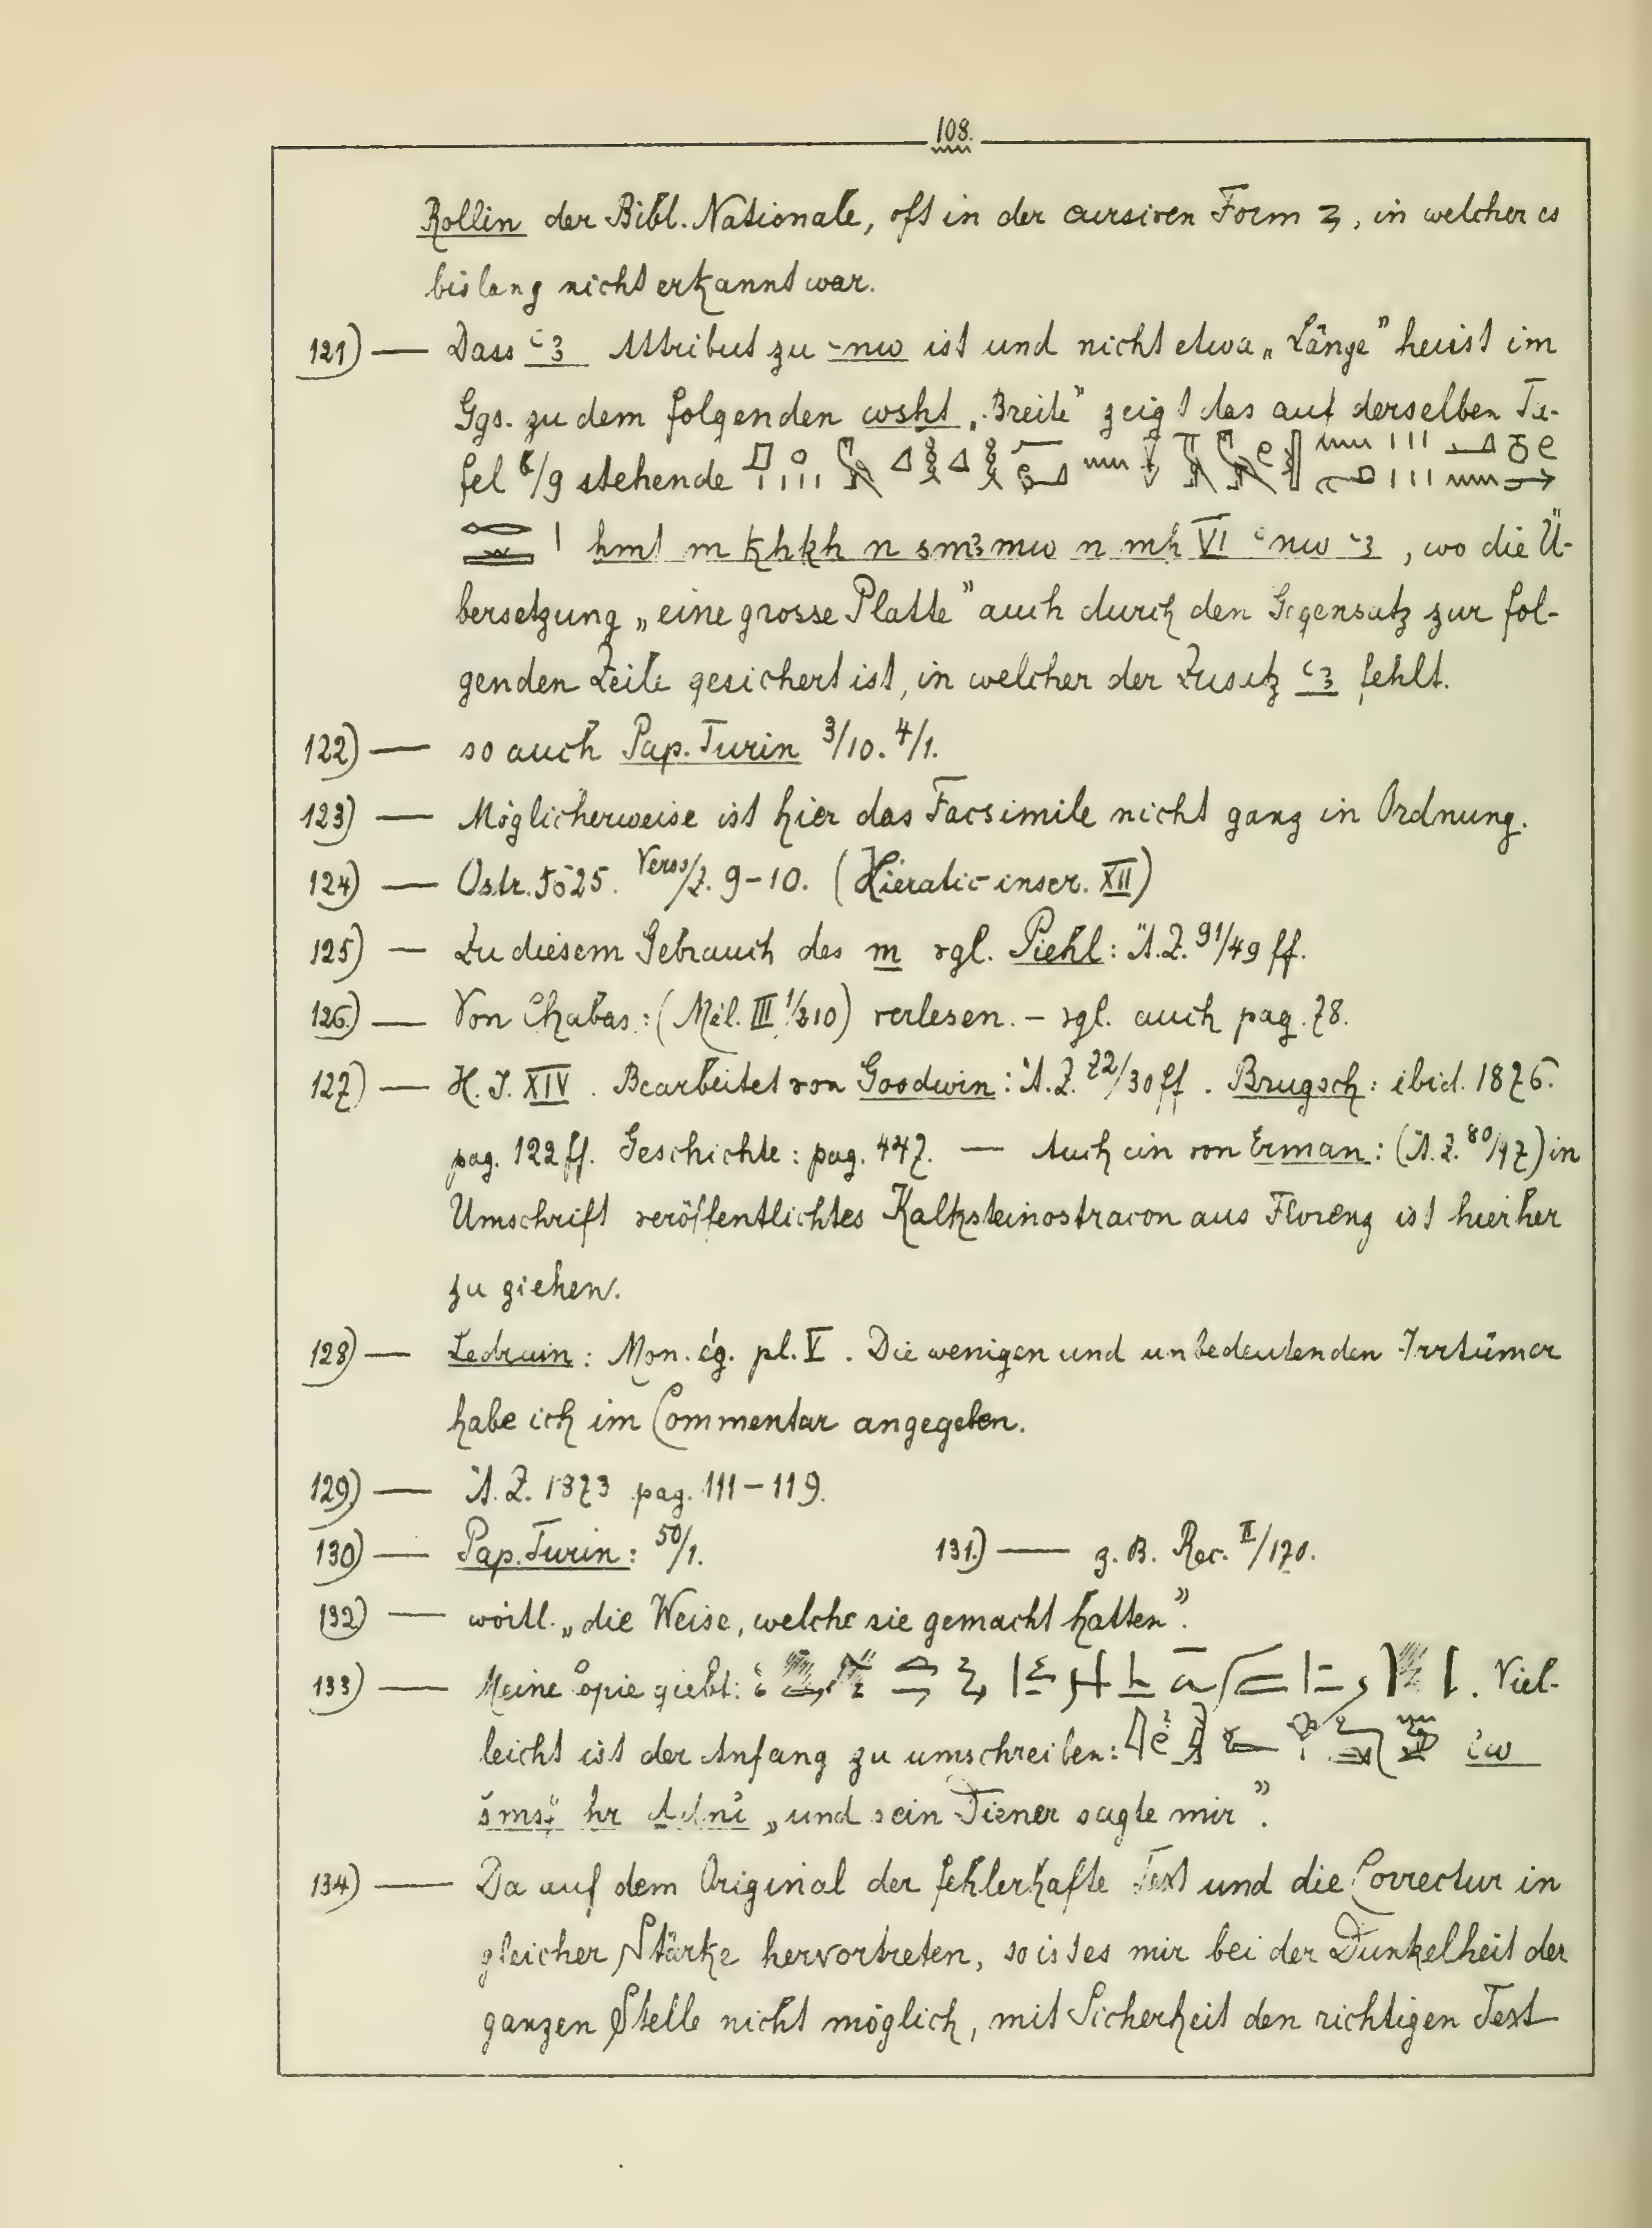 108.
Rollin der Bibl. Nationale, oft in der cursiven Form, in welcher es
bislang nicht erkannt war.
121) — Dass ꜥꜣ Attribut zu ꜥnw ist und nicht etwa „Länge" heisst im
Ggs. zu dem folgenden wsht „Breite" zeigt das auf derselben Ta-
fel 6/9 stehende
hmt m khkh n smꜣmw n mh VI ꜥnw ꜥꜣ, wo die Ü-
bersetzung „eine grosse Platte" auch durch den Gegensatz zur fol-
genden Zeile gesichert ist, in welcher der Zusatz ꜥꜣ fehlt.
122) — so auch Pap. Turin 3/10. 4/1.
123) — Möglicherweise ist hier das Facsimile nicht ganz in Ordnung.
124) — Ostr. 5625. Verso/Z. 9–10. (Hieratic inscr. XII)
125) — Zu diesem Gebrauch des m vgl. Piehl: Ä.Z. 91/49 ff.
126) — Von Chabas: (Mél. III 1/210) verlesen. – vgl. auch pag. 78.
127) — H. I. XIV. Bearbeitet von Goodwin: Ä.Z. 72/30 ff. Brugsch: ibid. 1876.
pag. 122 ff. Geschichte: pag. 447. — Auch ein von Erman: (Ä.Z. 80/97) in
Umschrift veröffentlichtes Kalksteinostracon aus Florenz ist hierher
zu ziehen.
128) — Ledrain: Mon. ég. pl. V. Die wenigen und unbedeutenden Irrtümer
habe ich im Commentar angegeben.
129) — Ä.Z. 1873 pag. 111–119.
130) — Pap. Turin: 50/1. 131.) — z. B. Rec. II/170.
132) — wörtl. „die Weise, welche sie gemacht hatten".
133) — Meine Copie giebt: . Viel-
leicht ist der Anfang zu umschreiben: iw
šmsf hr „und sein Diener sagte mir".
134) — Da auf dem Original der fehlerhafte Text und die Correctur in
gleicher Stärke hervortreten, so ist es mir bei der Dunkelheit der
ganzen Stelle nicht möglich, mit Sicherheit den richtigen Text